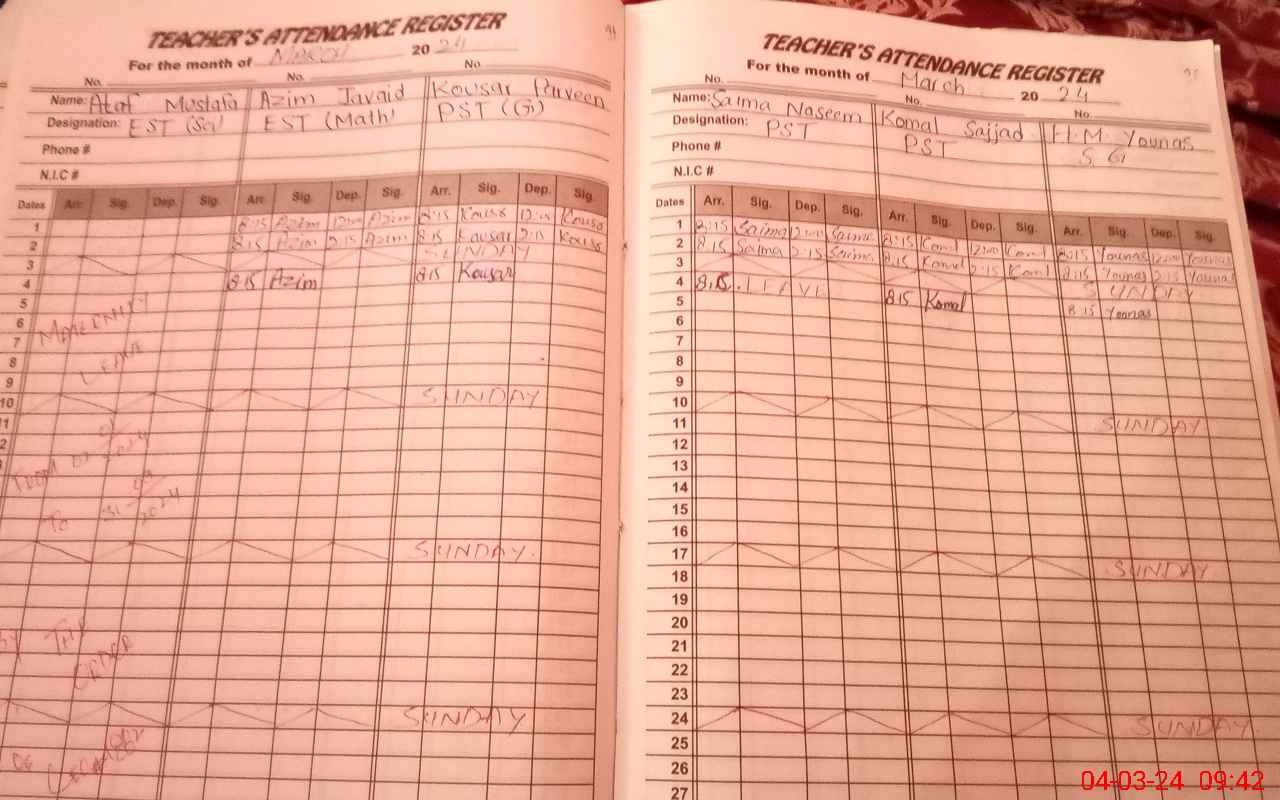 TEACHER'S ATTENDANCE REGISTER
For the month of March 20 24
No. No. No
Name: Ataf Mustafa Azim Javaid Kousar Perveen
Designation: EST (Sci) EST (Math) PST (G)
Phone #
N.I.C #
Dates Arr. Sig. Dep. Sig. Arr. Sig. Dep. Sig. Arr. Sig. Dep. Sig.
1 8:15 Azim 12:00 Azim 8:15 Kousar 12:15 Kousar
2 8:15 Azim 2:15 Azim 8:15 Kousar 2:15 Kousar
3 SUNDAY
4 8:15 Azim 8:15 Kousar
5
6
7
8
9
10 SUNDAY
LEAVE
To
SUNDAY.
THE
ORDER
SUNDAY
TEACHER'S ATTENDANCE REGISTER
For the month of March 20 24
No. No. No.
Name: Saima Naseem Komal Sajjad H.M. Younas
Designation: PST PST S G
Phone #
N.I.C #
Dates Arr. Sig. Dep. Sig. Arr. Sig. Dep. Sig. Arr. Sig. Dep. Sig.
1 8:15 Saima 12:00 Saima 8:15 Komal 12:00 Komal 8:15 Younas 12:00 Younas
2 8:15 Saima 2:15 Saima 8:15 Komal 2:15 Komal 8:15 Younas 2:15 Younas
3 SUNDAY
4 8:15 LEAVE 8:15 Komal 8:15 Younas
5
6
7
8
9
10 SUNDAY
11
12
13
14
15
16
17 SUNDAY
18
19
20
21
22
23
24 SUNDAY
25
26
27
04-03-24 09:42